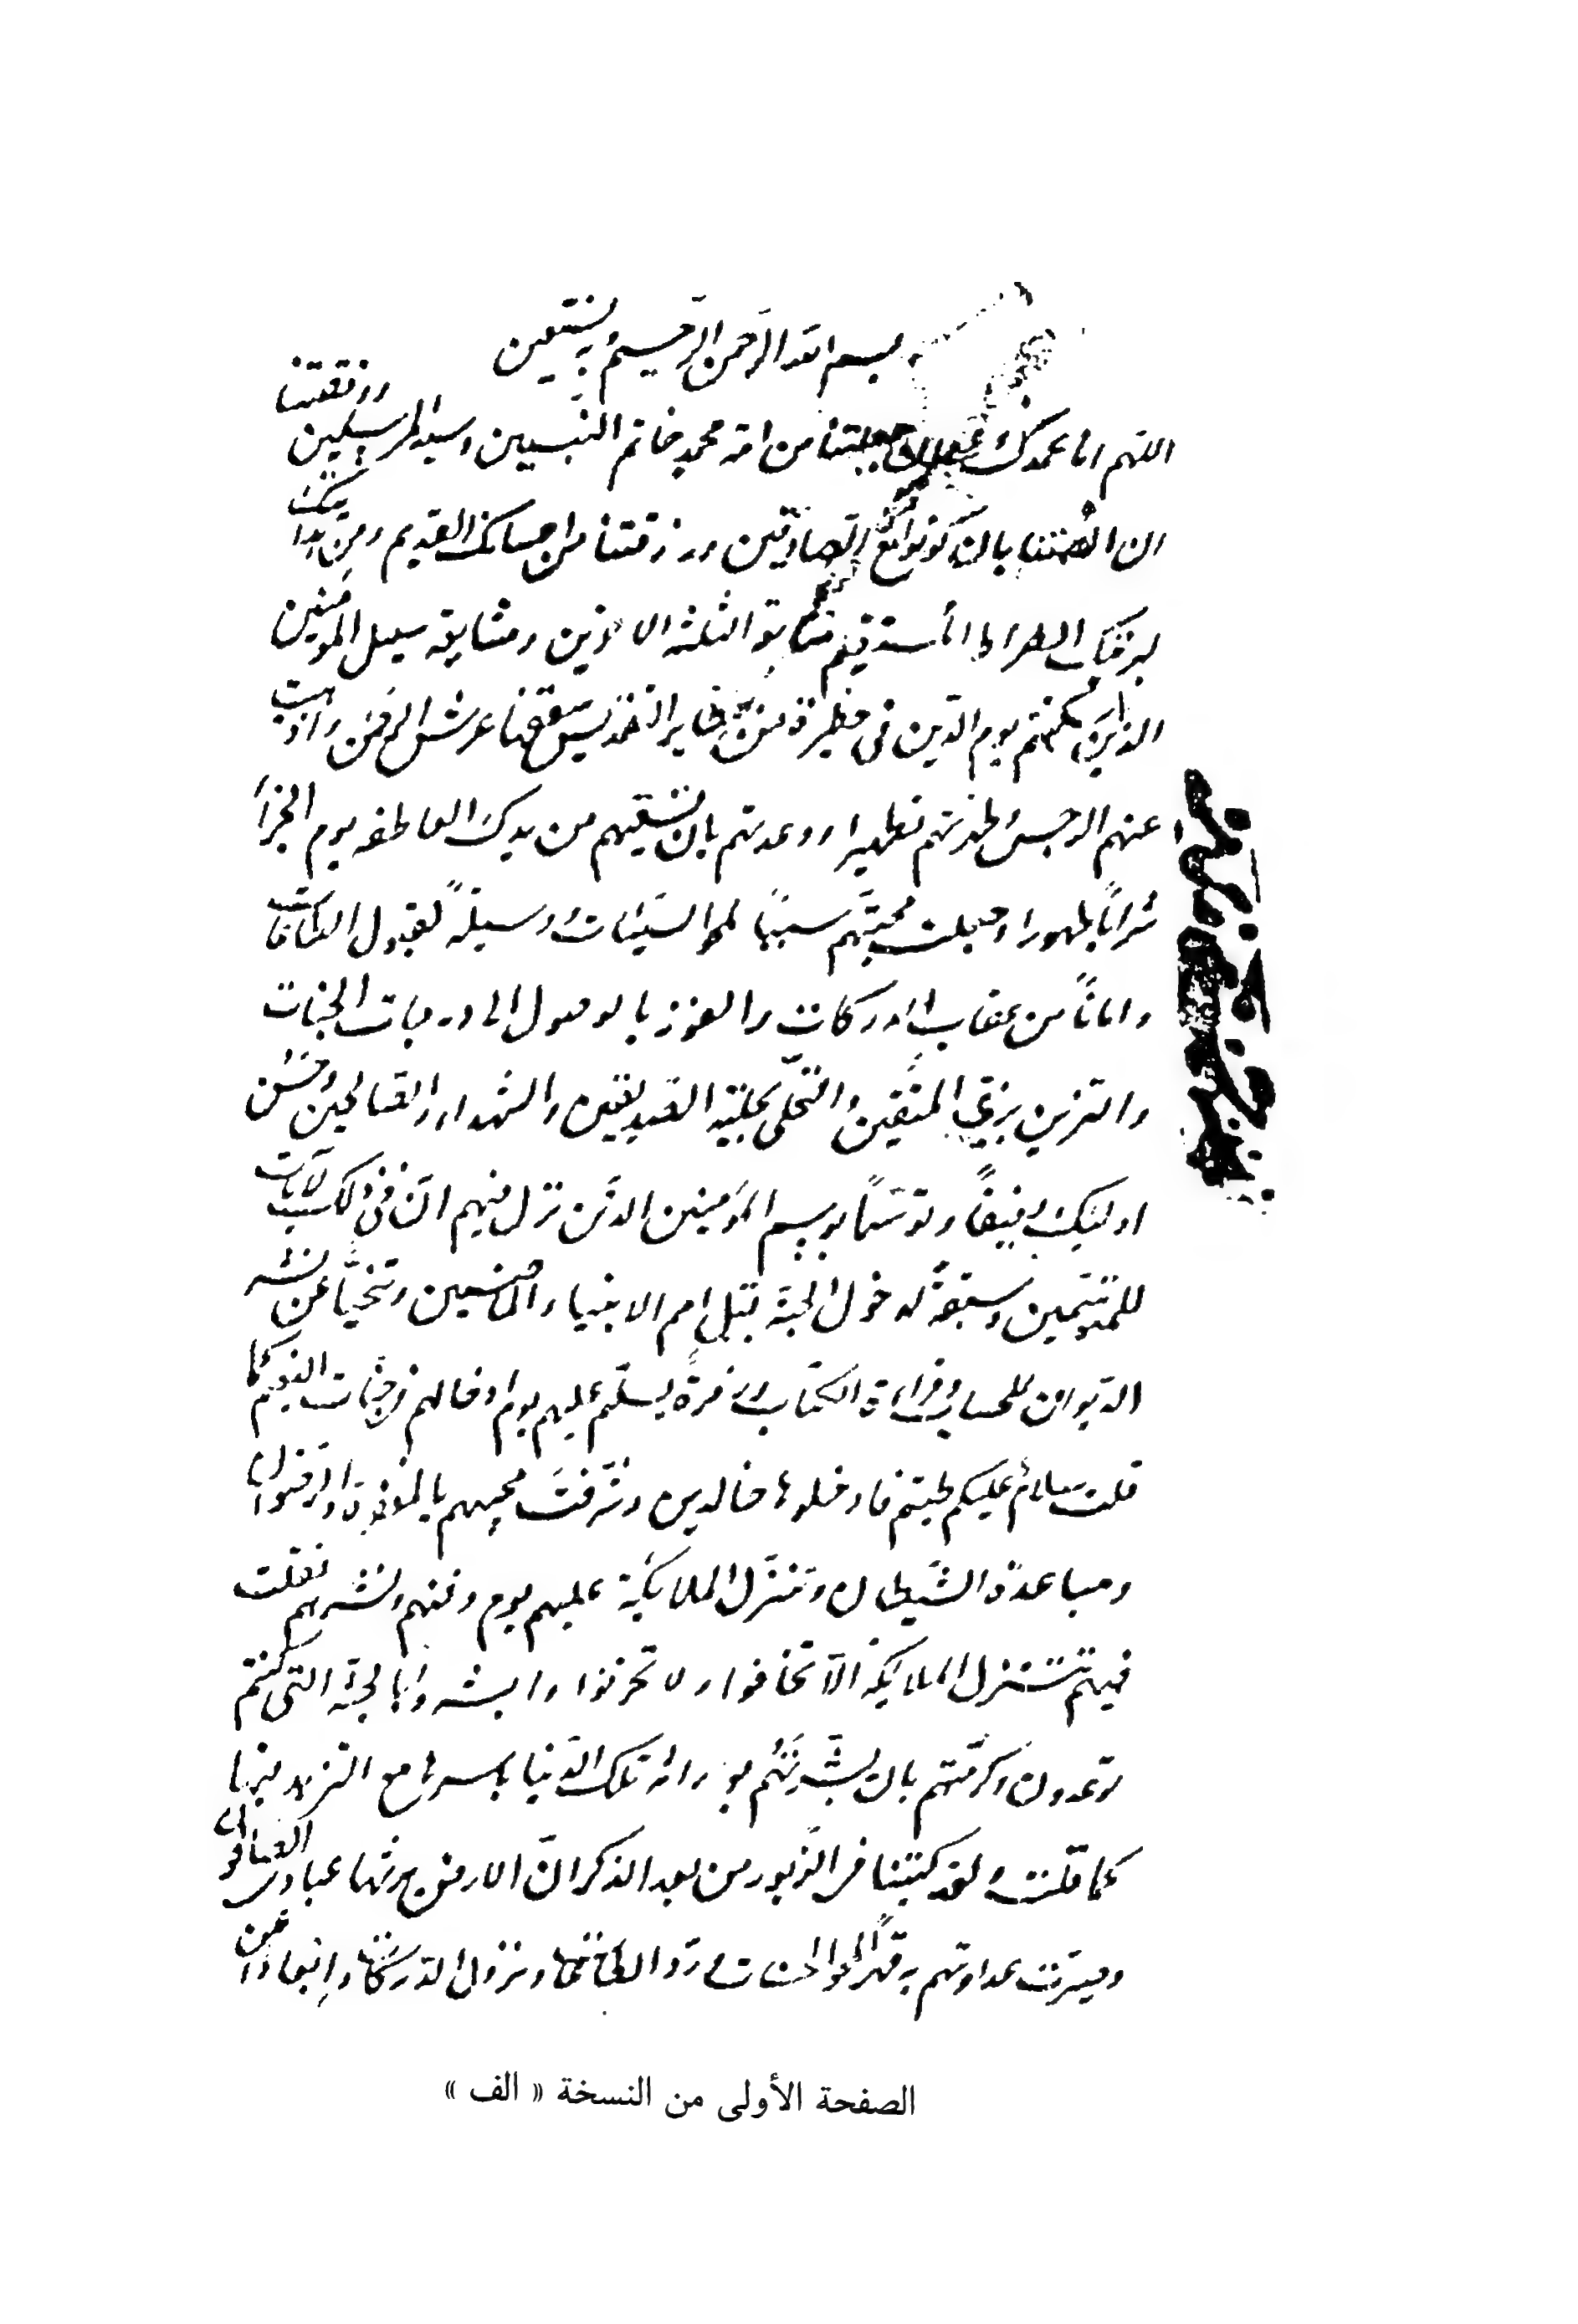 بسم الله الرحمن الرحيم وبه نستعين
اللهم انا نحمدك على ان جعلتنا من امة محمد خاتم النبيين وسيد المرسلين ووفقتنا
ان الهمتنا بان كونوا مع الصادقين ورزقتنا من احسانك القديم ومن
الصراط المستقيم الثلثة سبيل المؤمنين
الذين يوم الدين في حظيرة من حظاير القدس سقفها عرش الرحمن واذهبت
عنهم الرجس وطهرتهم تطهيرا ووعدتهم بان تسقيهم من يدك العاطفه يوم الجزأ
شرابًا طهورا وجعلت محبتهم سببًا لمحو السيئات ووسيلةً لقبول الطاعات
وامانًا من عقاب الدركات والفوز بالوصول الى درجات الجنات
والتزين بزيّ المتقين والتحلّى بحلية الصديقين والشهداء والصالحين وحسن
اولئك رفيقًا وتوسّمًا بوسم المؤمنين الذين نزل فيهم انّ فى ذلك لآيات
للمتوسّمين وسبقةً لدخول الجنّة قبل امم الانبياء والماضين وتنحيًا عن نشر
الديوان للحساب وقراءة الكتاب وزمرة يسلّم عليهم يوم ادخالهم في جنّات النعيم كما
قلت سلامٌ عليكم طبتم فادخلوها خالدين وشرّفت محبيهم بالمغفرة والرضوان
ومباعدة الشيطان وتنزّل الملايكة عليهم يوم دفنهم ونشرهم فقلت
فيهم تتنزل الملايكة الّا تخافوا ولا تحزنوا وابشروا بالجنّة التى كنتم
توعدون وكرّمتهم بان بشّرتهم بوراثة تلك الدّنيا باسرها مع التزهد فيها
كما قلت ولقد كتبنا في الزبور من بعد الذكر انّ الارض يرثها عبادي الصالحون
وصيّرت عداوتهم لمحو الحسنات وردّ الطاعات ونزول الدركات وابعادًا من
الصفحة الأولى من النسخة « الف »